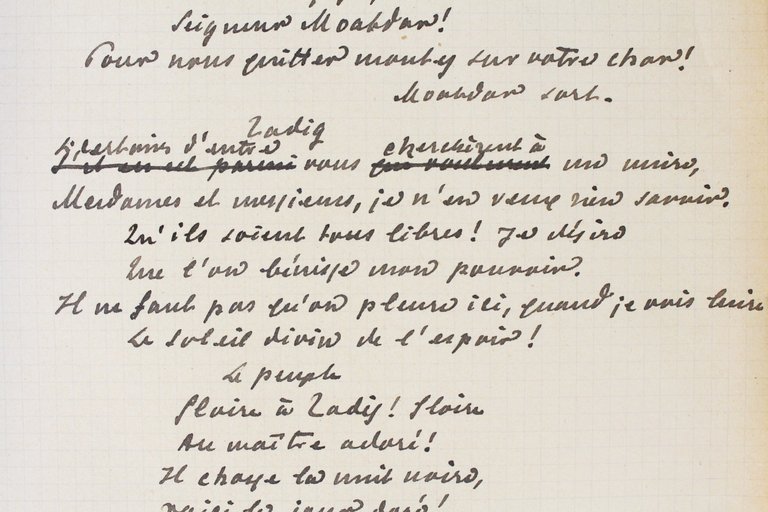 Seigneur Moabdar!
Pour nous quitter montez sur votre char!
Moabdar sort.
Zadig
Si certains d'entre vous cherchèrent à me nuire,
S'il en est parmi qui voulurent
Mesdames et messieurs, je n'en veux rien savoir.
Qu'ils soient tous libres! Je désire
Que l'on bénisse mon pouvoir.
Il ne faut pas qu'on pleure ici, quand je vois luire
Le soleil divin de l'espoir!
Le peuple
Gloire à Zadig! Gloire
Au maître adoré!
Il chasse la nuit noire,
Voici le jour doré!